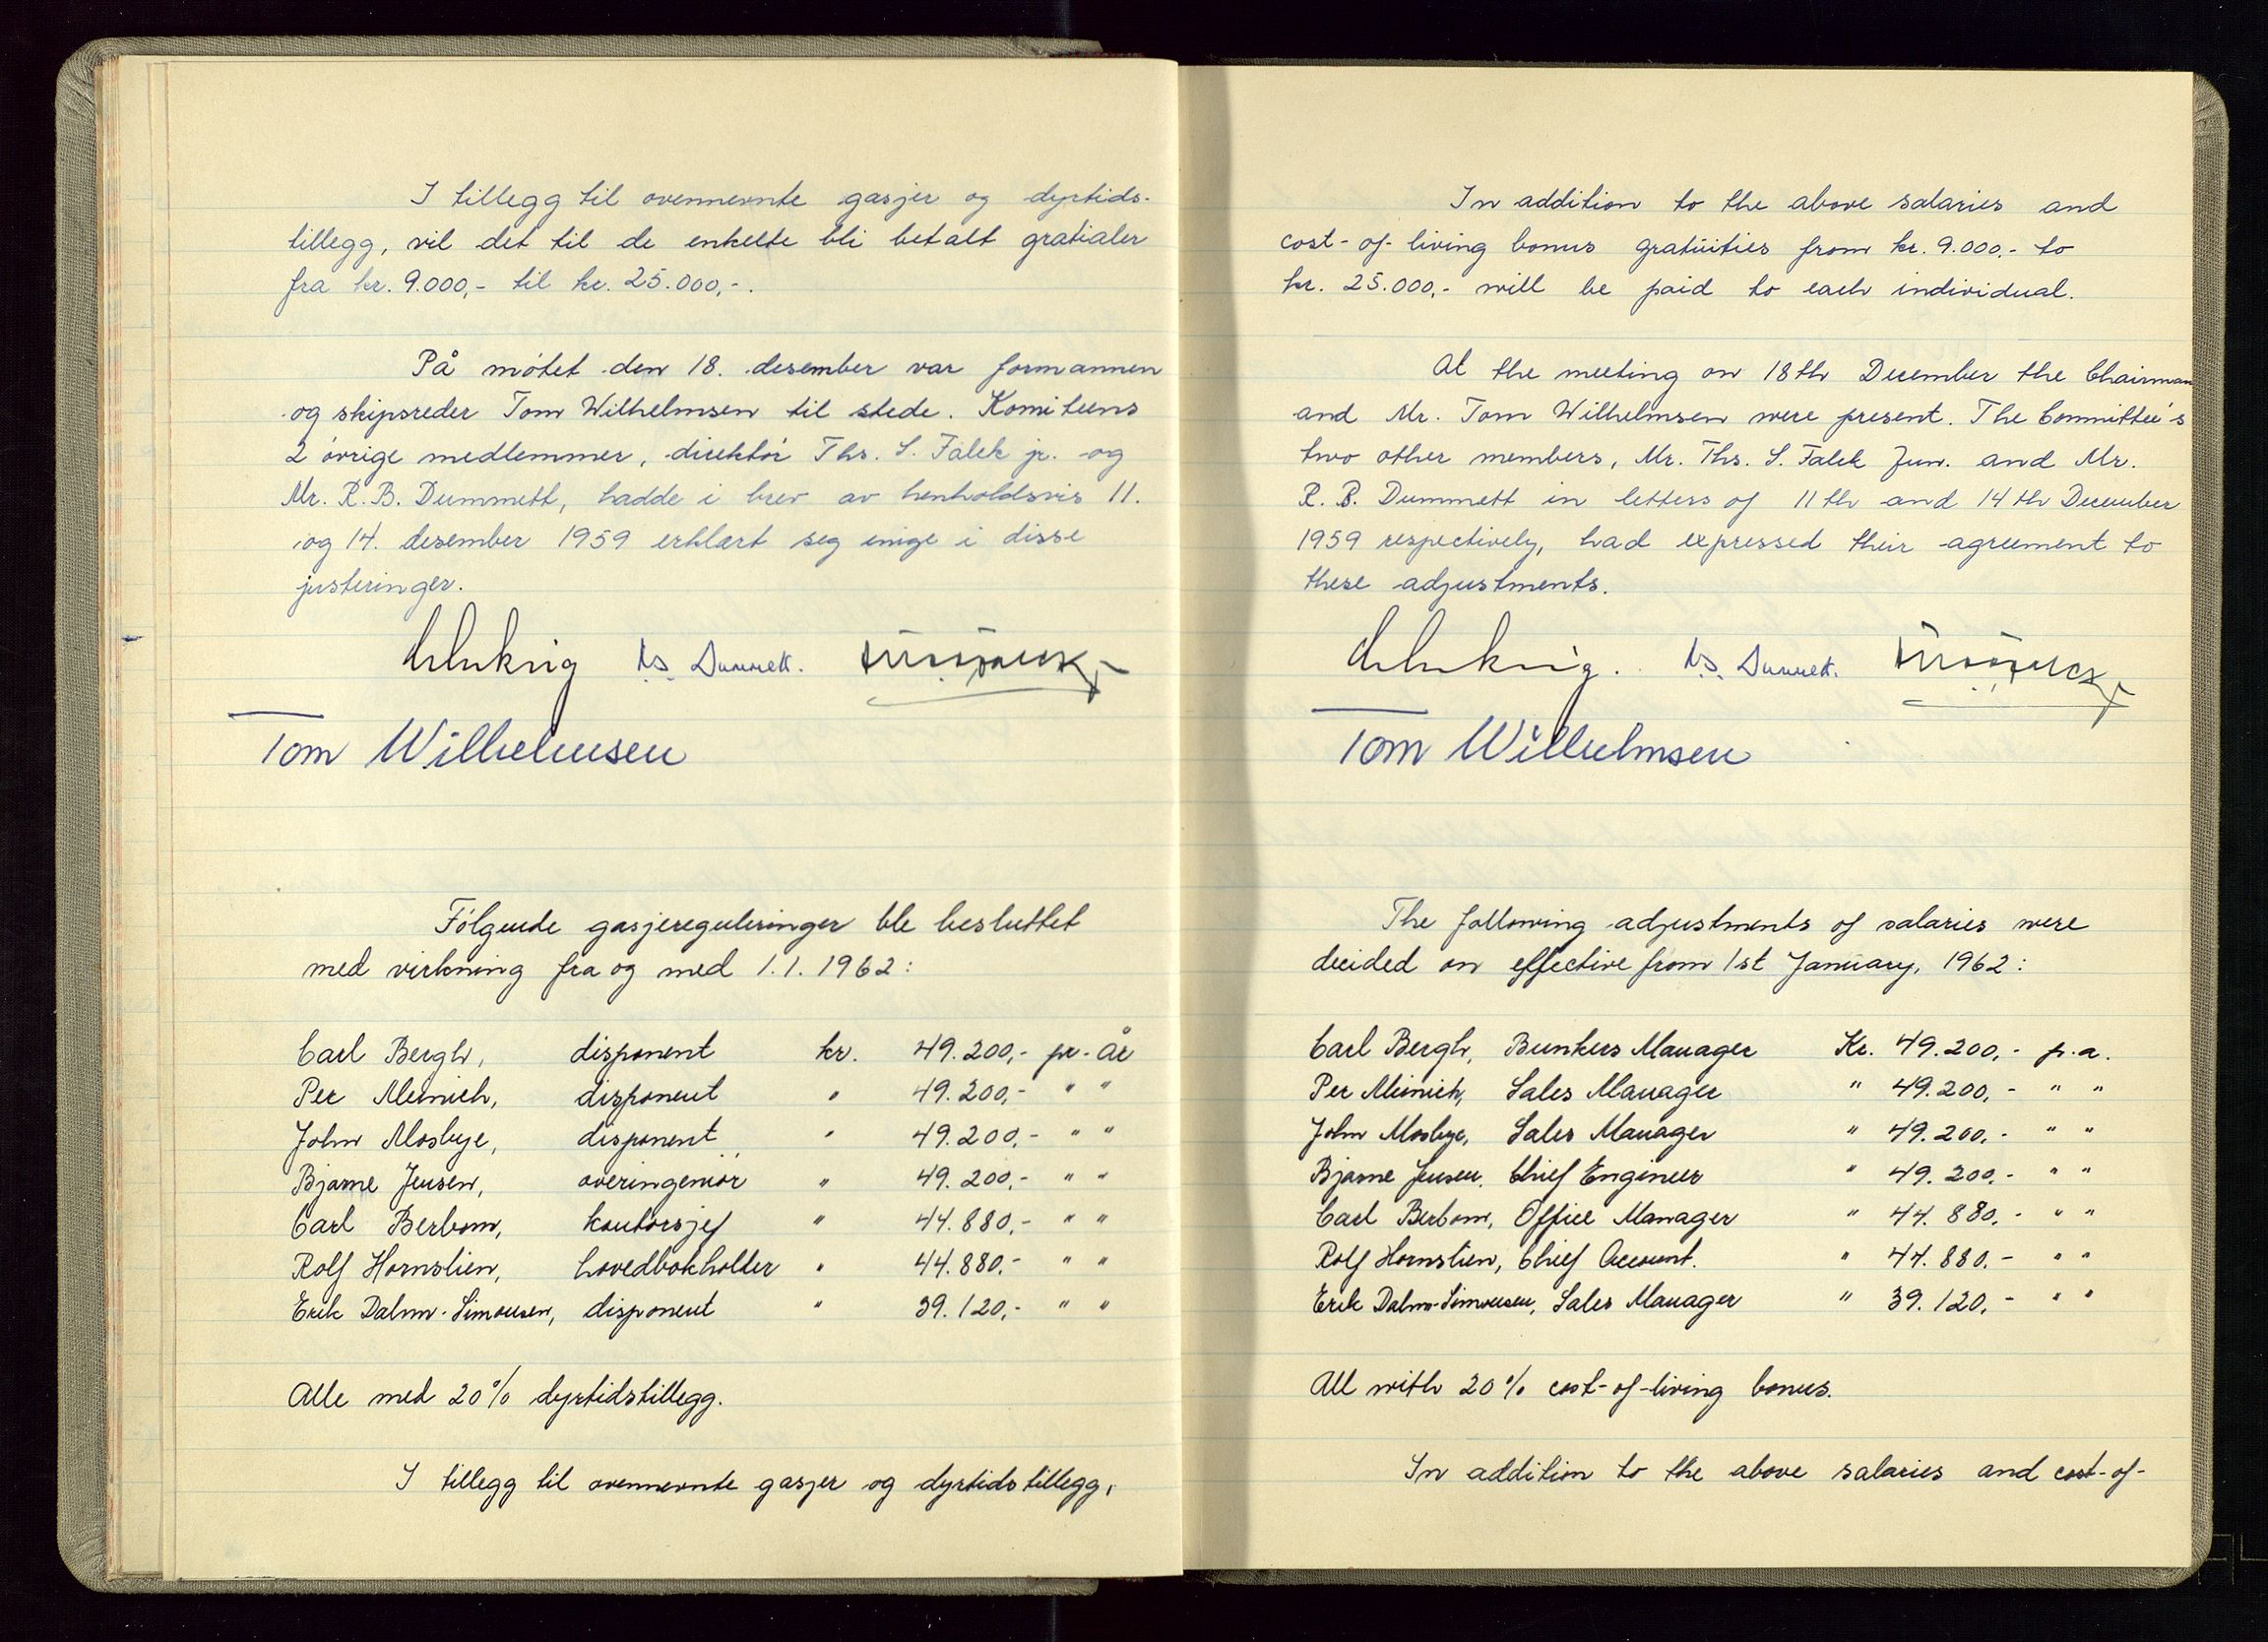 I tillegg til ovennevnte gasjer og dyrtids-
tillegg, vil det til de enkelte bli betalt gratialer
fra kr. 9.000,- til kr. 25.000,-.
På møtet den 18. desember var formannen
og skipsreder Tom Wilhelmsen til stede. Komiteens
2 øvrige medlemmer, direktør Ths. S. Falck jr. og
Mr. R. B. Dummett, hadde i brev av henholdsvis 11.
og 14. desember 1959 erklært seg enige i disse
justeringer.
Dummett.
Tom Wilhelmsen
Følgende gasjereguleringer ble besluttet
med virkning fra og med 1.1. 1962:
Carl Bergh, disponent kr. 49.200,- pr. år
Per Meinich, disponent " 49.200,- " "
John Mosbye, disponent " 49.200,- " "
Bjarne Jensen, overingeniør " 49.200,- " "
Carl Berbom, kontorsjef " 44.880,- " "
Rolf Hornslien, hovedbokholder " 44.880,- " "
Erik Dahm-Simonsen, disponent " 39.120,- " "
Alle med 20% dyrtidstillegg.
I tillegg til ovennevnte gasjer og dyrtidstillegg,
In addition to the above salaries and
cost-of-living bonus gratuities from kr. 9.000,- to
kr. 25.000,- will be paid to each individual.
At the meeting on 18th December the Chairman
and Mr. Tom Wilhelmsen were present. The Committee's
two other members, Mr. Ths. S. Falck Jun. and Mr.
R. B. Dummett in letters of 11th and 14th December
1959 respectively, had expressed their agreement to
these adjustments.
Dummett.
Tom Wilhelmsen
The following adjustments of salaries were
decided on effective from 1st January, 1962:
Carl Bergh, Bunkers Manager Kr. 49.200,- p.a.
Per Meinich, Sales Manager " 49.200,- " "
John Mosbye, Sales Manager " 49.200,- " "
Bjarne Jensen, Chief Engineer " 49.200,- " "
Carl Berbom, Office Manager " 44.880,- " "
Rolf Hornslien, Chief Account. " 44.880,- " "
Erik Dahm-Simonsen, Sales Manager " 39.120,- " "
All with 20% cost-of-living bonus.
In addition to the above salaries and cost-of-